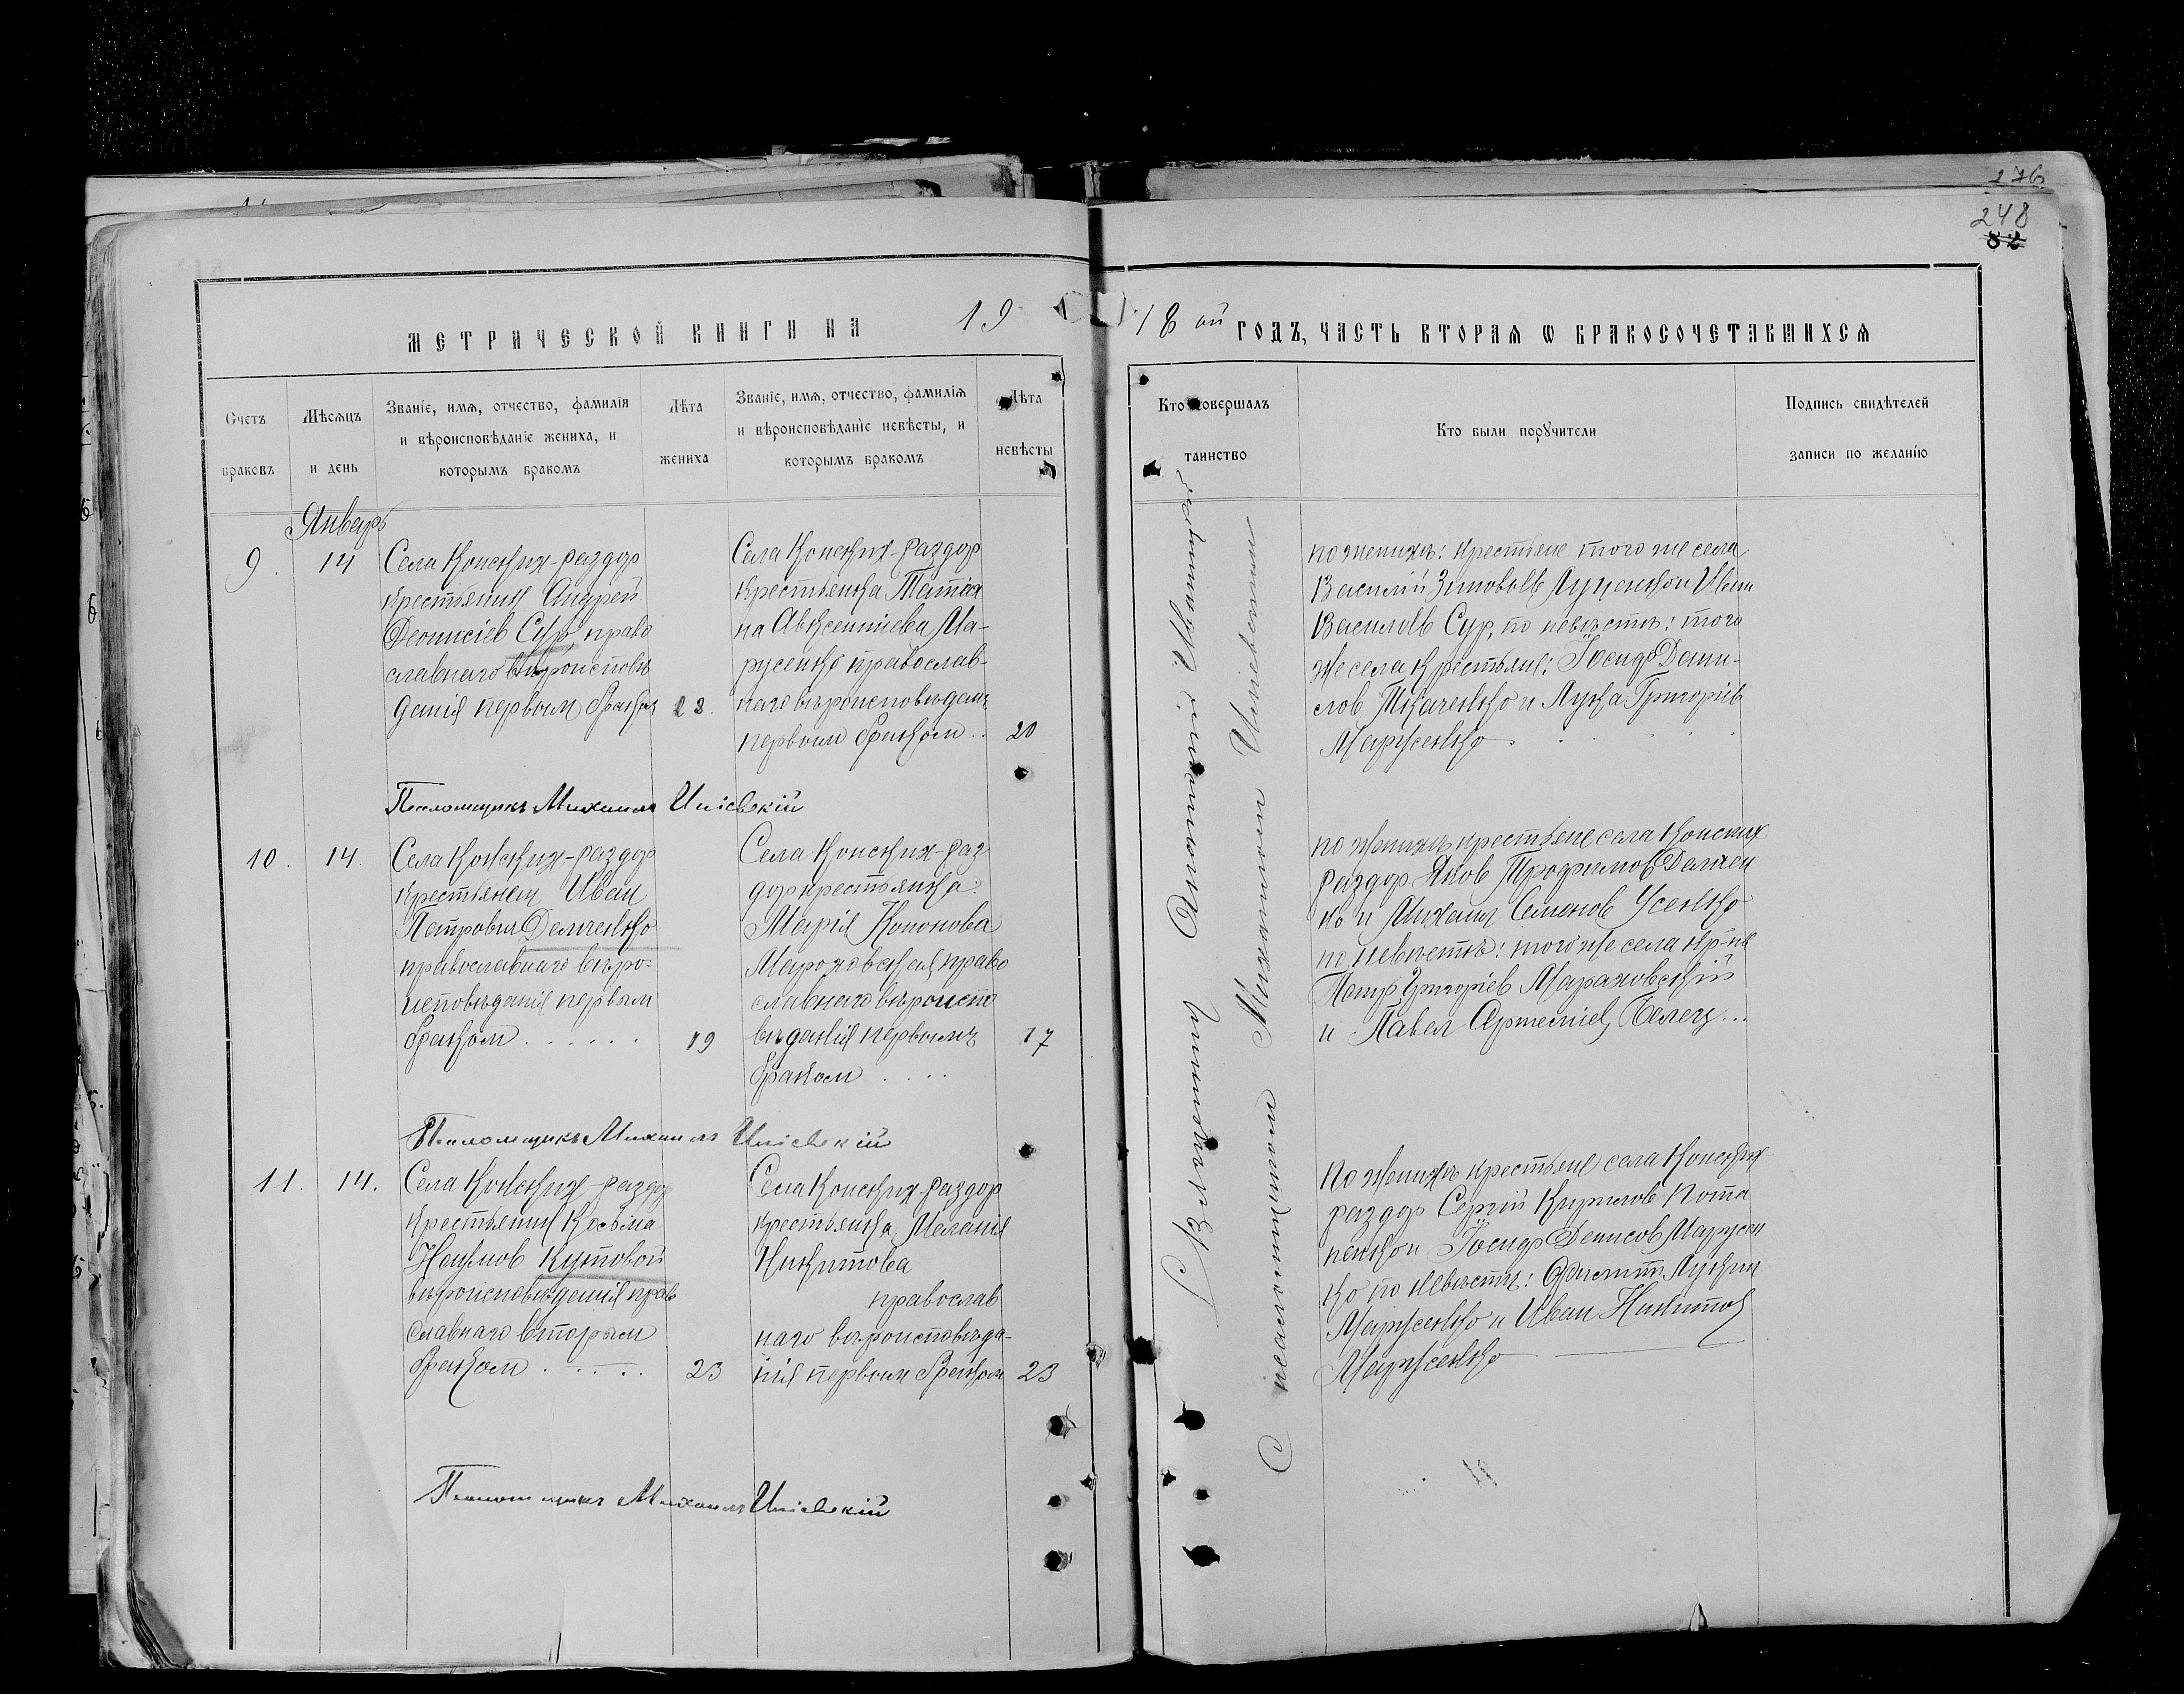 276
248
82
МЕТРИЧЕСКОЙ КНИГИ НА 19
18 ый ГОДЪ, ЧАСТЬ ВТОРАЯ Ѡ БРАКОСОЧЕТАВШИХСЯ
Счетъ браковъ
Мѣсяцъ и день
Званіе, имя, отчество, фамилія
и вѣроисповѣданіе жениха, и
которымъ бракомъ
Лѣта жениха
Званіе, имя, отчество, фамилія
и вѣроисповѣданіе невѣсты, и
которымъ бракомъ
Лѣта невѣсты
Кто совершалъ таинство
Кто были поручители
Подпись свидѣтелей
записи по желанію
Январь
9. 14
Села Конских-раздор
крестьянин Андрей
Деонисіев Сур право
славнаго вѣроисповѣ
данія первым браком
Села Конских-раздор
крестьянка Татія
на Авксентіева Ма-
русенко православ-
наго вѣроисповѣдан
первым браком ..
20
по женихѣ: крестьяне того же села
Василій Зиновьев Луценко и Иван
Васильев Сур, по невѣстѣ: того
же села крестьяне: Іосиф Дани-
лов Ткаченко и Лука Григоріев
Марусенко
Псаломщикъ Михаилъ
10. 14.
Села Конских-раздор
крестьянин Иван
Петрович Демченко
православнаго вѣро-
исповѣданія первым
браком ......
19
Села Конских-раз
дор крестьянка
Марія Кононова
Мароховская право
славнаго вѣроиспо
вѣданія первымъ
браком ....
17
по женихѣ крестьяне села Конских
раздор Яков Трофимов Демчен
ко и Михаил Семенов Усенко
по невѣстѣ: того же села кр-не
Григоріев Мараховскій
и Павел Артеміев Белец...
Псаломщикъ Михаилъ
11. 14.
Села Конских-раздор
крестьянин Козьма
Наумов Кутовой
вѣроисповѣданія прав
славнаго вторым
браком .....
23
Села Конских раздор
крестьянка Меланія
Никитова
православ
наго вѣроисповѣда-
нія первым браком
23
По женихѣ крестьяне села Конских
раздор Сергій Кирилов Пота
пенко и Іосиф Денисов Марусен
ко по невѣстѣ: Лукин
Марусенко и Иван Никитов
Марусенко
Псаломщикъ Михаилъ
Священникъ
с псаломщиком Михаилом